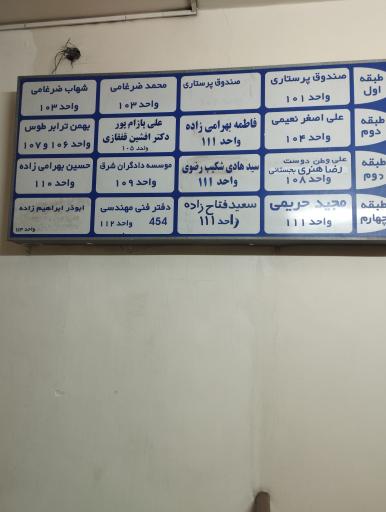 طبقه اول
صندوق پرستاری
واحد ۱۰۱
صندوق پرستاری
محمد ضرغامی
واحد ۱۰۳
شهاب ضرغامی
واحد ۱۰۳
طبقه دوم
علی اصغر نعیمی
واحد ۱۰۴
فاطمه بهرامی زاده
واحد ۱۱۱
علی بازام پور
دکتر افشین قفقازی
واحد ۱۰۵
بهمن ترابر طوس
واحد ۱۰۶ و ۱۰۷
طبقه دوم
علی وطن دوست
رضا هنری بجستانی
واحد ۱۰۸
سید هادی شکیب رضوی
واحد ۱۱۱
موسسه دادگران شرق
واحد ۱۰۹
حسین بهرامی زاده
واحد ۱۱۰
طبقه چهارم
مجید حریمی
واحد ۱۱۱
سعید فتاح زاده
واحد ۱۱۱
دفتر فنی مهندسی
454 واحد ۱۱۲
ابوذر ابراهیم زاده
واحد ۱۱۳